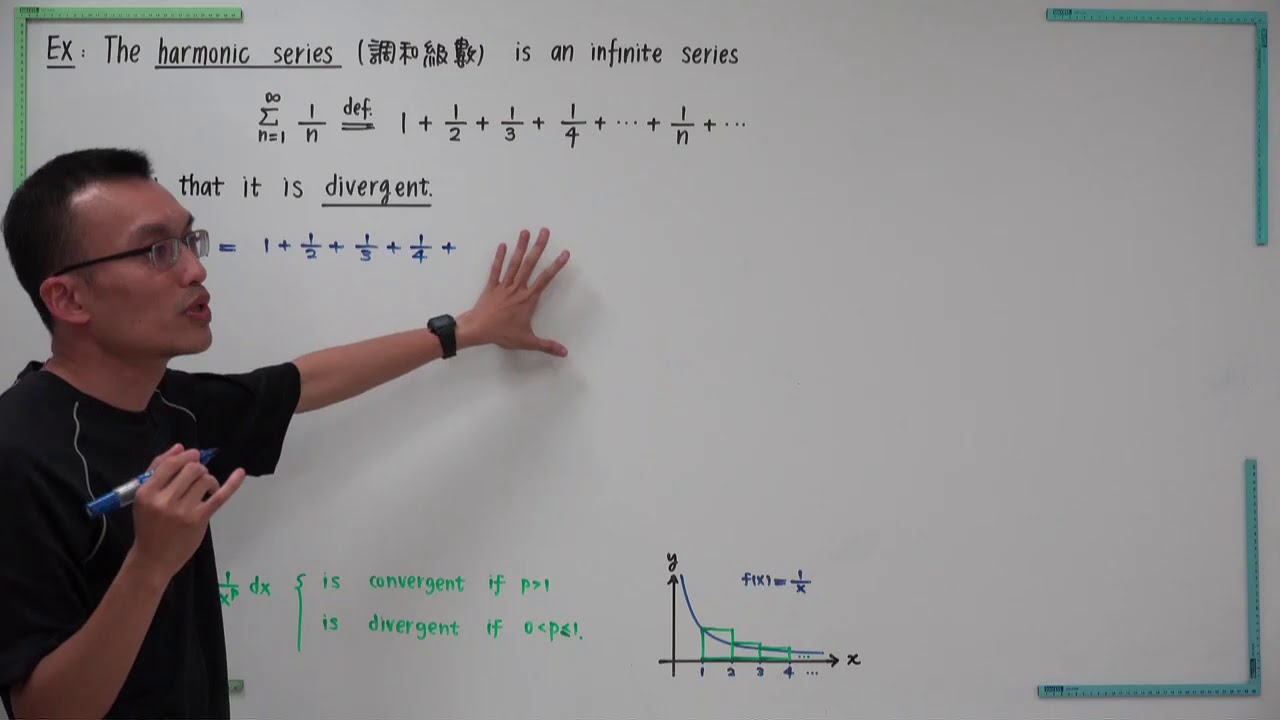 Ex: The harmonic series (調和級數) is an infinite series
∞ Σ n=1 1/n def. = 1 + 1/2 + 1/3 + 1/4 + ··· + 1/n + ···
that it is divergent.
= 1 + 1/2 + 1/3 + 1/4 +
1/x^p dx { is convergent if p>1
is divergent if 0<p≤1.
y
f(x) = 1/x
x
1 2 3 4 ···